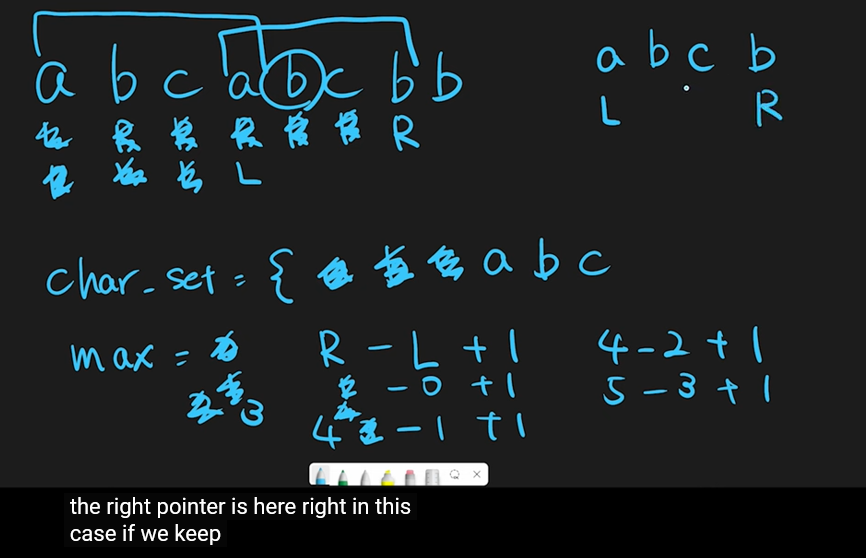 a b c a b c b b
R
L
a b c b
L R
char_set = { a b c
max = 3
R - L + 1
- 0 + 1
4 - 1 + 1
4 - 2 + 1
5 - 3 + 1
the right pointer is here right in this
case if we keep